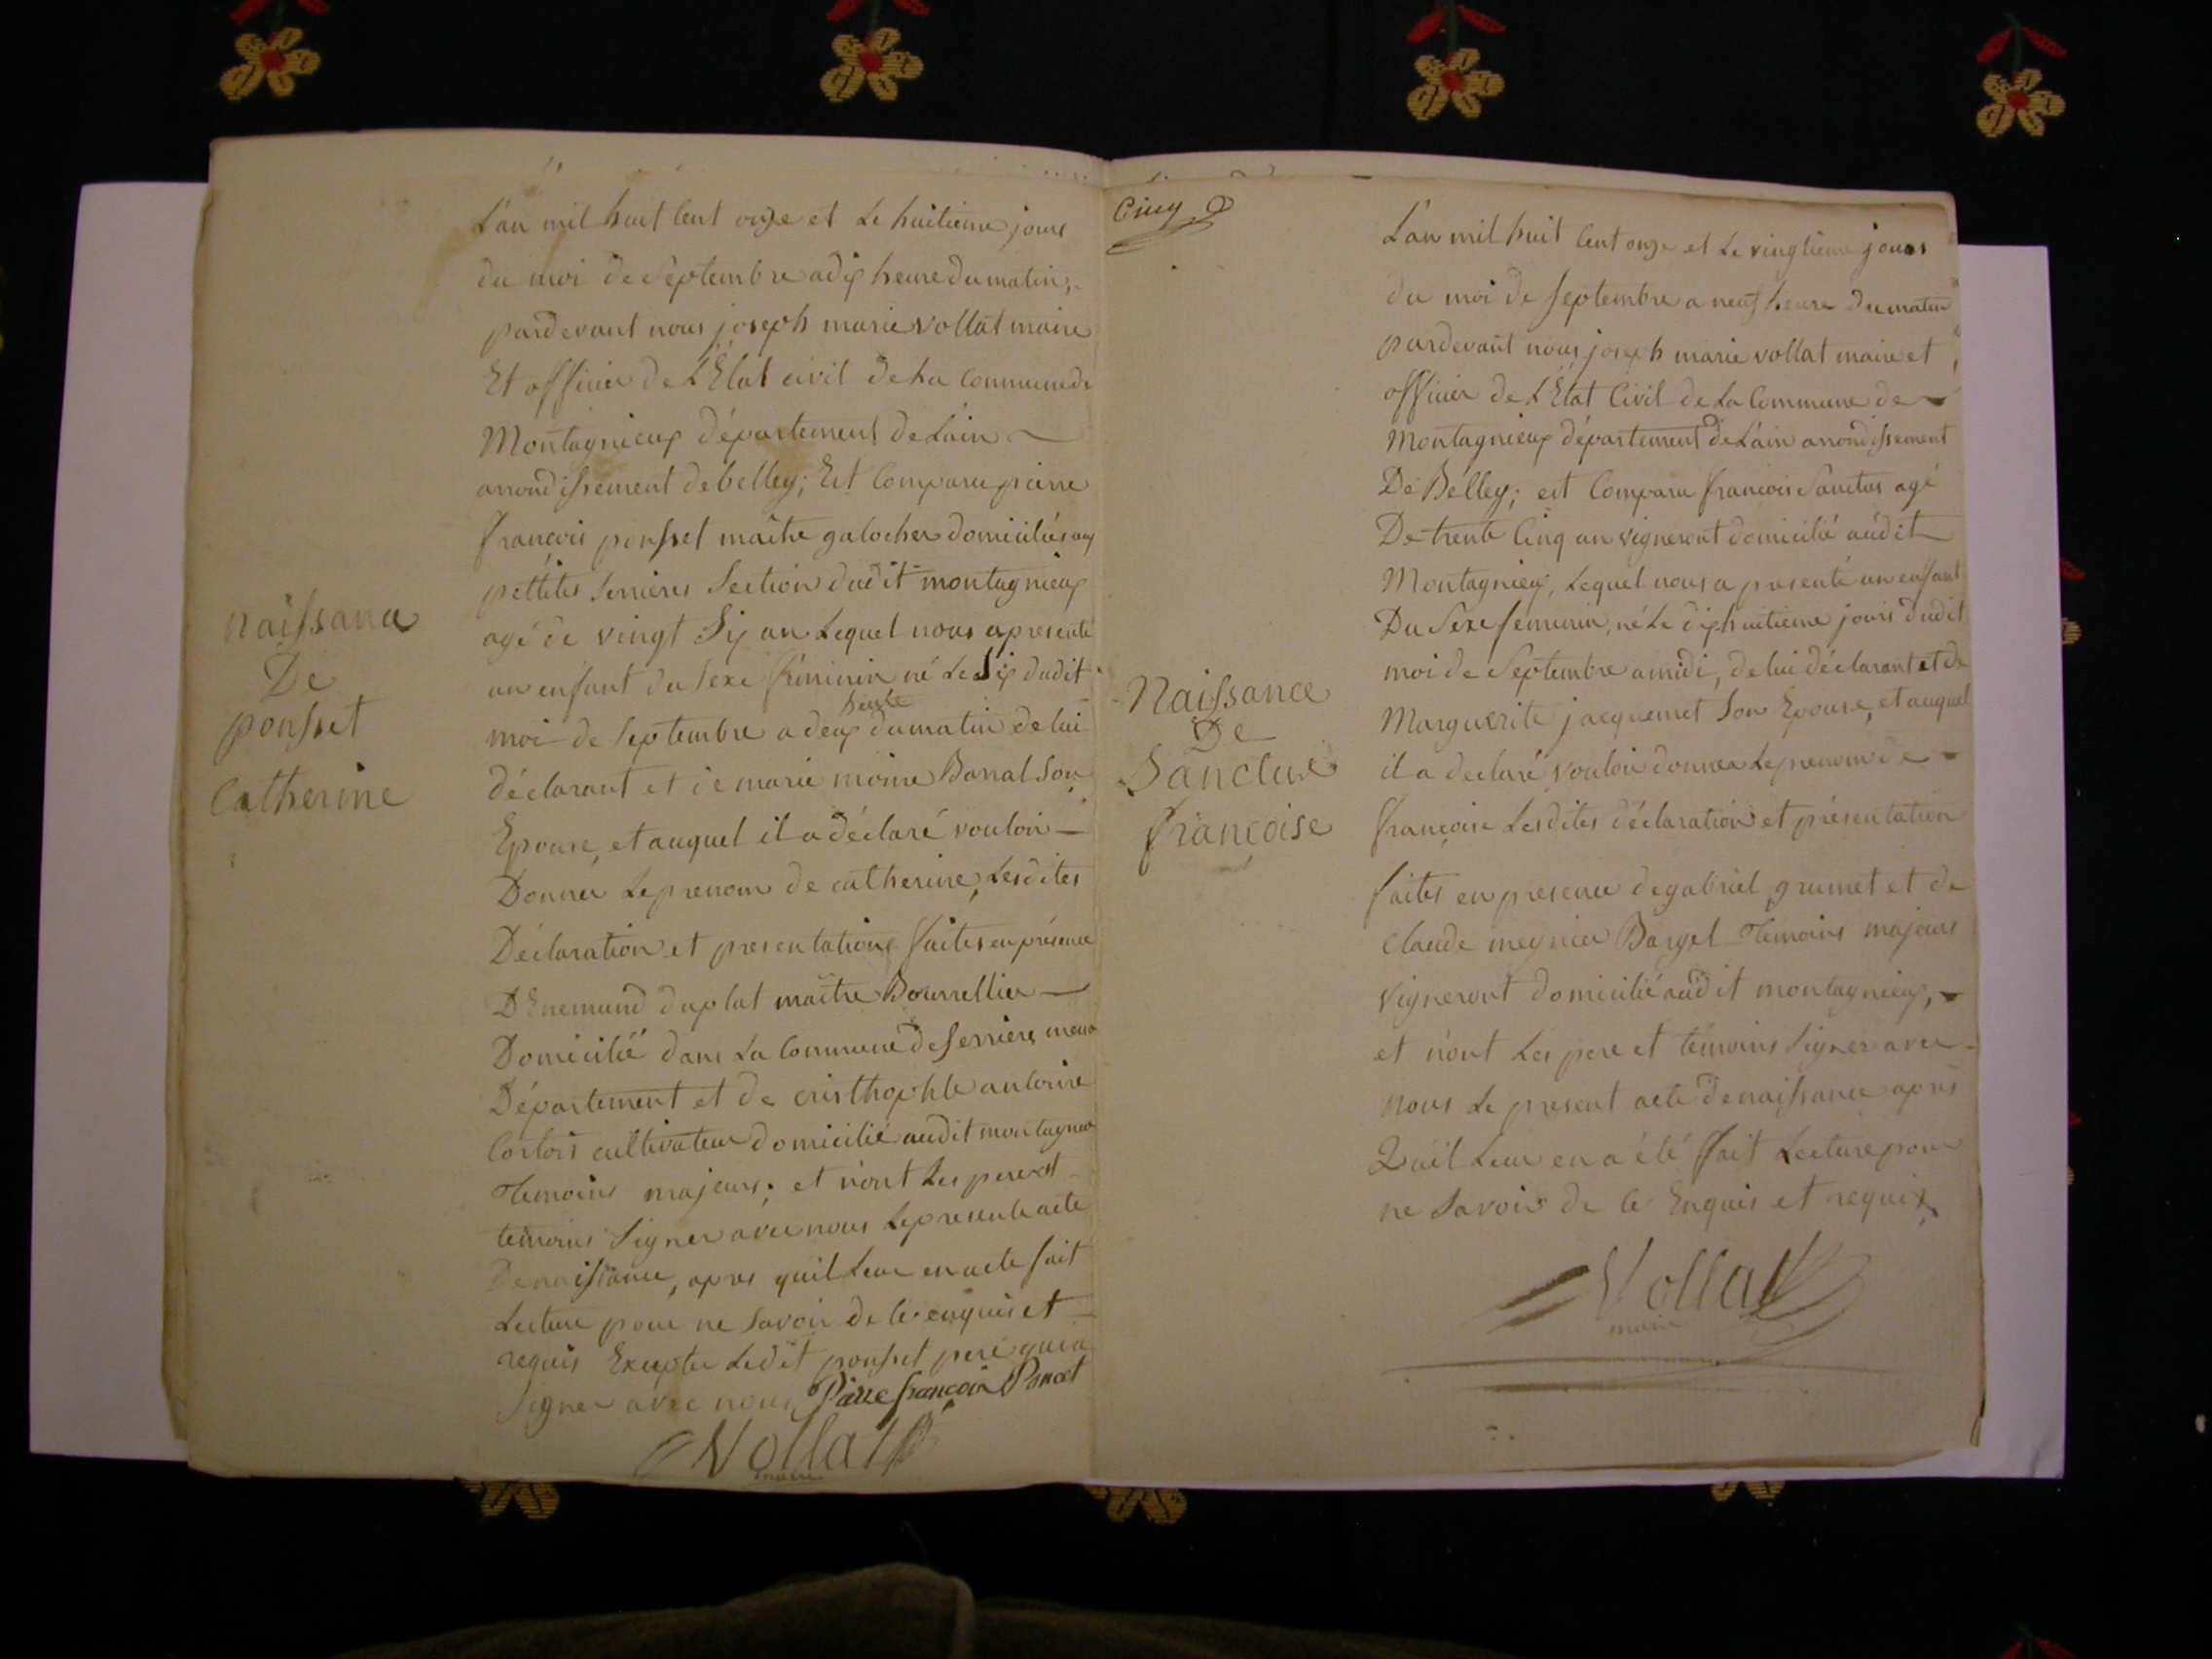 naissance
De
ponsset
Catherine
L'an mil huit cent onze et le huitieme jours
du moi de Septembre a dix heure du matin,
pardevant nous joseph marie vollat maire
Et officier de L'Etat civil de La Commune de
Montagnieux département de L'ain
arrondissement de belley; Est Comparu pierre
françois ponsset maitre galocher domiciliés aux
pettites Serrieres Section dudit montagnieux
agé de vingt Six an Lequel nous a presenté
un enfant du sexe féminin né Le Six dudit
moi de Septembre a deux heure du matin de lui
déclarant et de marie moine Barral Son
Epouse, et auquel il a déclaré vouloir
Donner Le prenom de catherine, Lesdites
Déclaration et presentations faites en présence
D'Enemund duplat maître Bourrellier
Domicilié dans La Commune de Serrieres meme
Département et de cristhophle antoine
Cortois cultivateur domicilié audit montagnieux
Temoins majeurs; et n'ont Les pere et
temoins Signer avec nous Le presente acte
De naissance, apres quil Leur en a ete fait
Lecture pour ne Savoir de ce enquis et
requis Excepter Ledit ponsset pere qui a
Signer avec nous Pierre françois Poncet
Vollat
maire
Cinq
Naissance
De
Sanctus
françoise
L'an mil huit cent onze et Le vingtieme jours
du moi de Septembre a neuf heure du matin
pardevant nous joseph marie vollat maire et
officier de L'Etat Civil de La Commune de
Montagnieux département de L'ain arrondissement
De Bélley; est Comparu françois Sanctus agé
De trente Cinq an vigneront domicilié audit
Montagnieux, Lequel nous a presenté un enfant
Du Sexe feminin, né Le dix huitieme jours dudit
moi de Septembre a midi, de lui déclarant et de
Marguerite jacquemet Son Epouse, et auquel
il a declaré vouloir donner Le prenom de
françoise Lesdites déclaration et présentation
faites en presence de gabriel grumet et de
Claude meynier Bargel Temoins majeurs
vigneront domicilié audit montagnieux,
et n'ont Les pere et témoins Signer avec
nous Le present acte de naissance après
Qu'il Leur en a été fait Lecture pour
ne Savoir de ce Enquis et requis
Vollat
maire